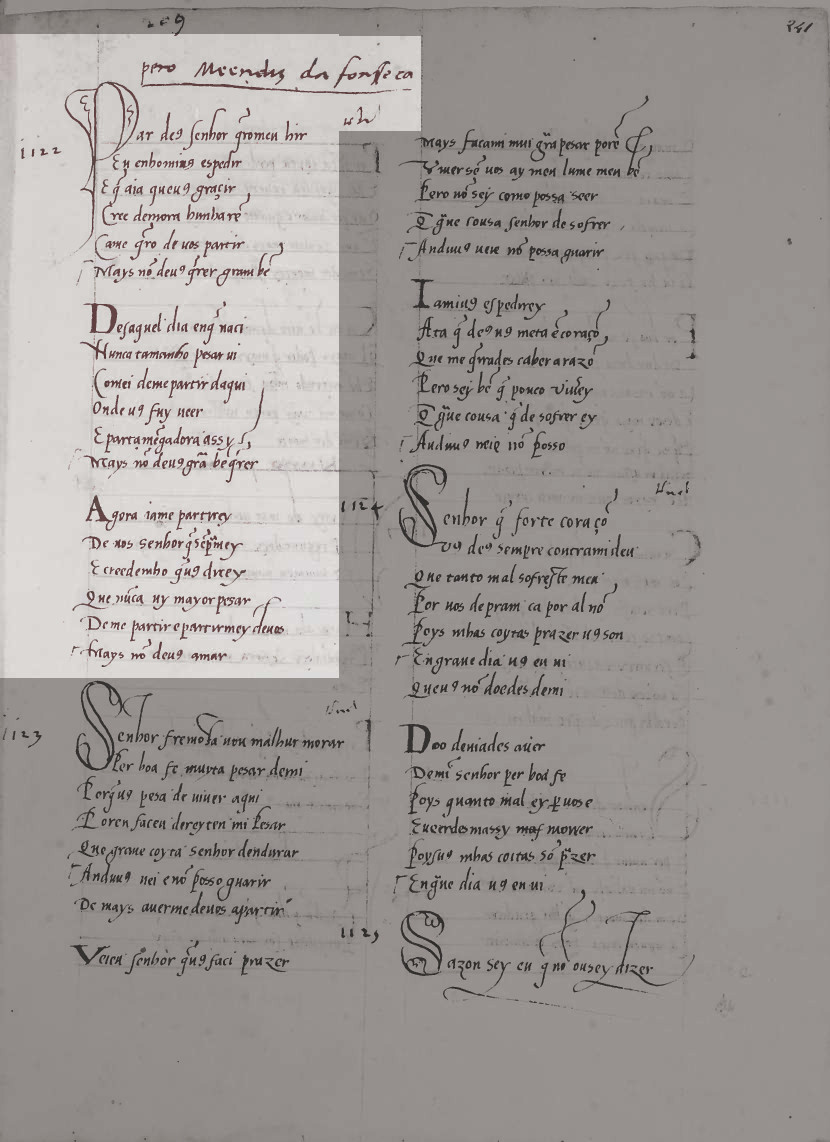 209
241
pero Meendiz da fonsseca
1122
Par deꝯ senhor q̃romeu hir
E ų enhominꝯ espedir
E q̃ aia queuꝯ graçir
Cree demora hunha rē
Ca me q̃ro de uos partir
Mays nō deuꝯ q̃rer gram bē
Desaquel dia enq̃ naci
Nunca tamanho pesar ui
Comei deme partir daqui
Onde uꝯ fuy ueer
E parta meg̃adora assy
Mays nō deuꝯ grã bē q̃rer
Agora iame partirey
De uos senhor q̃ sēp̃mey
E creedemho q̃uꝯ direy
Que nūca uy mayor pesar
De me partir e partirmey deuos
Mays nō deuꝯ amar
1123
Senhor fremosa uou malhur morar
Per boa fe muyta pesar demi
Porq̃uꝯ pesa de uiuer aqui
Poren facea dereyten mi pesar
Que graue coyta senhor dendurar
Anduuꝯ uei e nō posso guarir
De mays auerme deuos apartir
Veieu senhor q̃uꝯ faci prazer
Mays facami mui grã pesar porē
Viuer sē uos ay meu lume meu bē
Pero nō sey como possa seer
Q q̃ue cousa senhor de sofrer
Anduuꝯ ueie nō possa guarir
Iamiuꝯ espedirey
Ata q̃ deꝯ uꝯ meta ē coraçō
Que me q̃irades caber a razō
Pero sey bē q̃ pouco viuirey
Q q̃ue cousa q̃ de sofrer ey
Anduuꝯ neie nō posso
1124
Senhor q̃ forte coraçō
uꝯ deꝯ sempre contrami deu
Que tanto mal sofreste meu
Por uos de pram ca por al nō
Poys mhas coytas prazer uꝯ son
En graue dia uꝯ eu ui
Queuꝯ nō doedes demi
Doo deuiades auer
De mī senhor per boa fe
Poys quanto mal ey ꝑ uose
E ueerdes massy maf morrer
Poysuꝯ mhas coitas sō p̃zer
Eng̃ue dia uꝯ eu ui
1125
Sazon sey eu q̃ nō ousey dizer